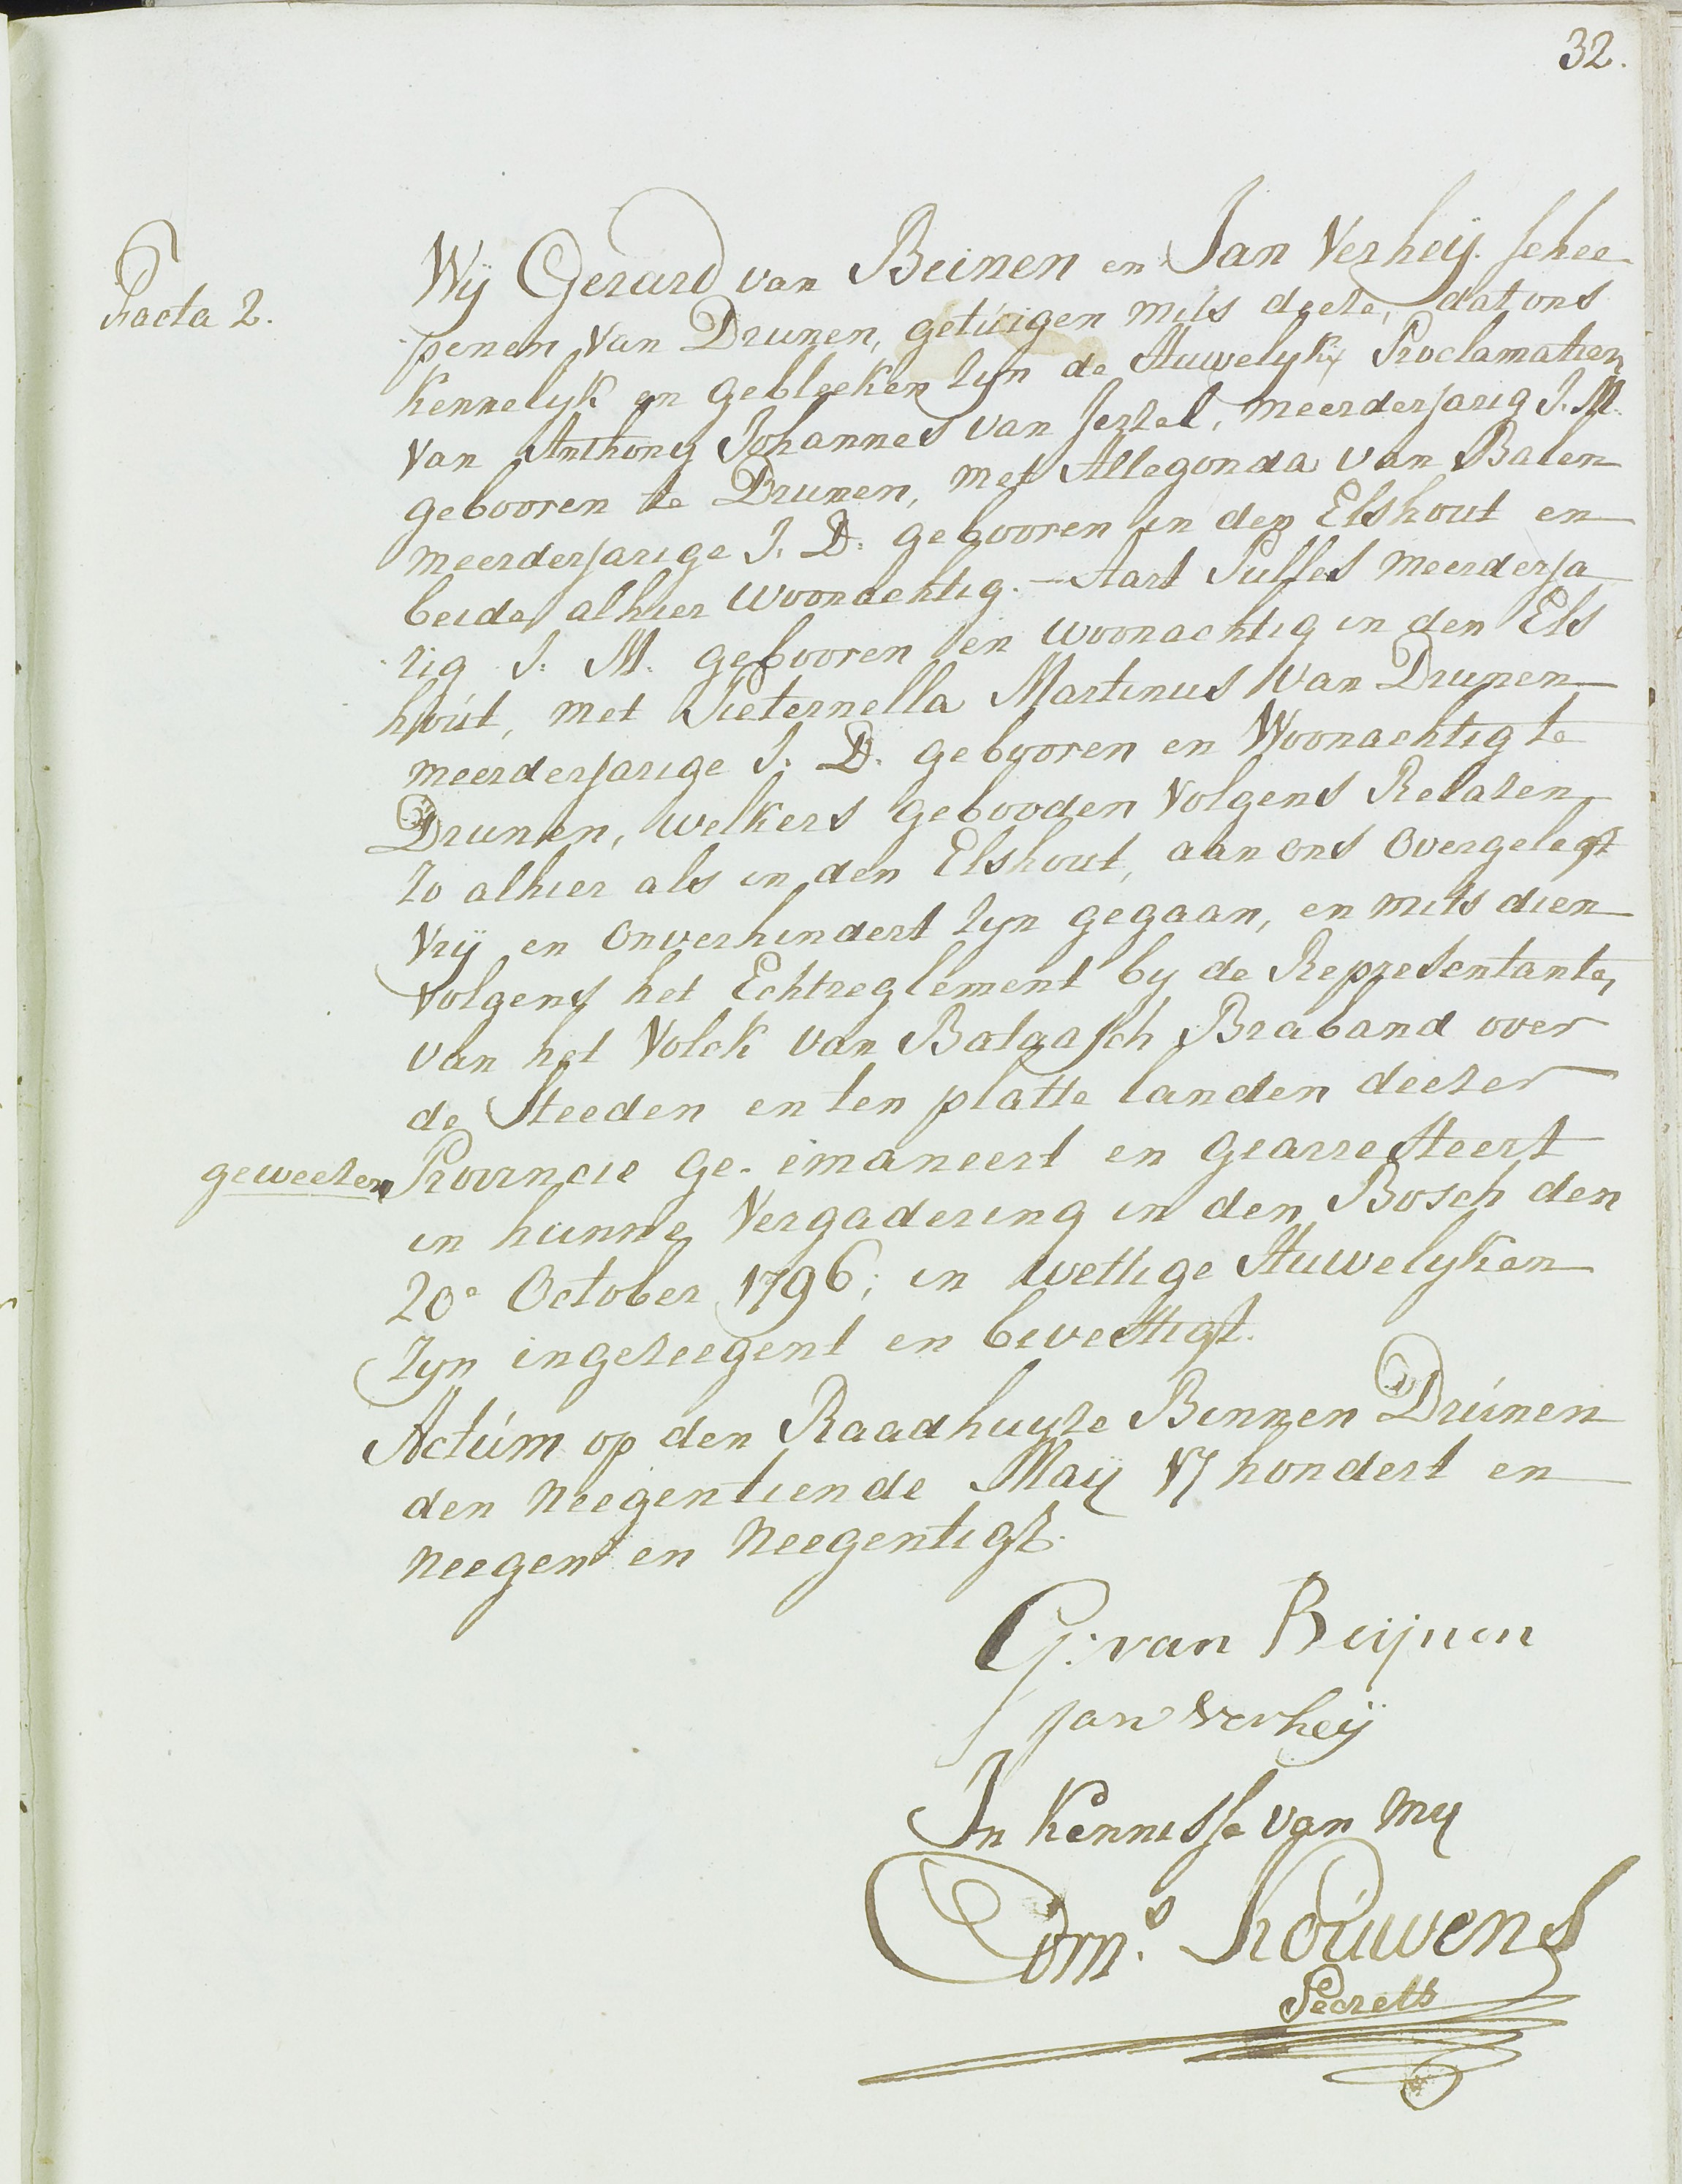 32.
Facta 2.
Wÿ Gerard van Beinen en Jan Verheÿ. schee
penen van Drunen, getuigen mits deeze, dat ons
kennelyk en gebleeken zyn de Huwelyks Proclamatien
van Anthony Johannes van Iersel, meerderjarig J. M.
gebooren te Drunen, met Allegonda van Balen
meerderjarige J. D. gebooren in den Elshout en
beide alhier woonachtig. - Aart Pulles meerderja
rig J. M. gebooren en woonachtig in den Els
hout, met Pieternella Martinus van Drunen
meerderjarige J. D. gebooren en Woonachtig te
Drunen, welkers gebooden volgens Relazen
zo alhier als in den Elshout, aan ons overgelegt
vrÿ en onverhindert zyn gegaan, en mits dien
volgens het Echtreglement by de Representante,
van het Volck van Bataafsch Braband over
de Steeden en ten platte landen deezer
geweezen Provincie ge-emaneert en gearresteert
in hunne Vergadering in den Bosch den
20e October 1796; in wettige Huwelyken
zyn ingezeegent en bevestigt.
Actum op den Raadhuyze Binnen Drunen
den neegentiende Maÿ 17 hondert en
neegen en neegentigt.
G. van Beijnen
Jan Verheÿ
In kennisse van my
Corns. Kouwens
Secrets